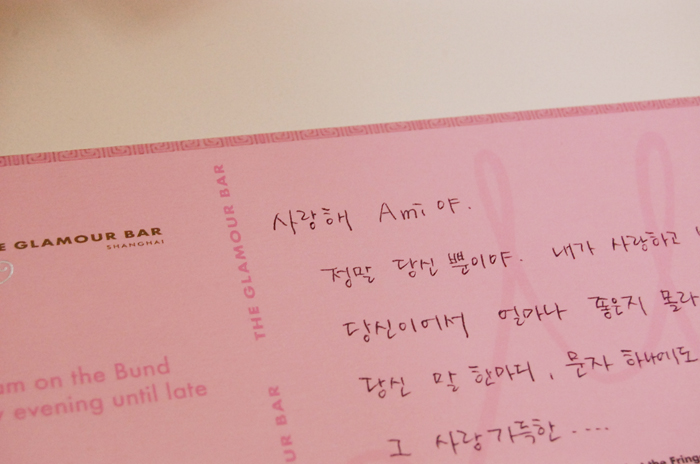 E GLAMOUR BAR
SHANGHAI
THE GLAMOUR BAR
UR BAR
am on the Bund
y evening until late
사랑해 Ami 야.
정말 당신 뿐이야. 내가 사랑하고
당신이어서 얼마나 좋은지 몰라
당신 말 한마디, 문자 하나에도
그 사랑가득한 ....
the Fring